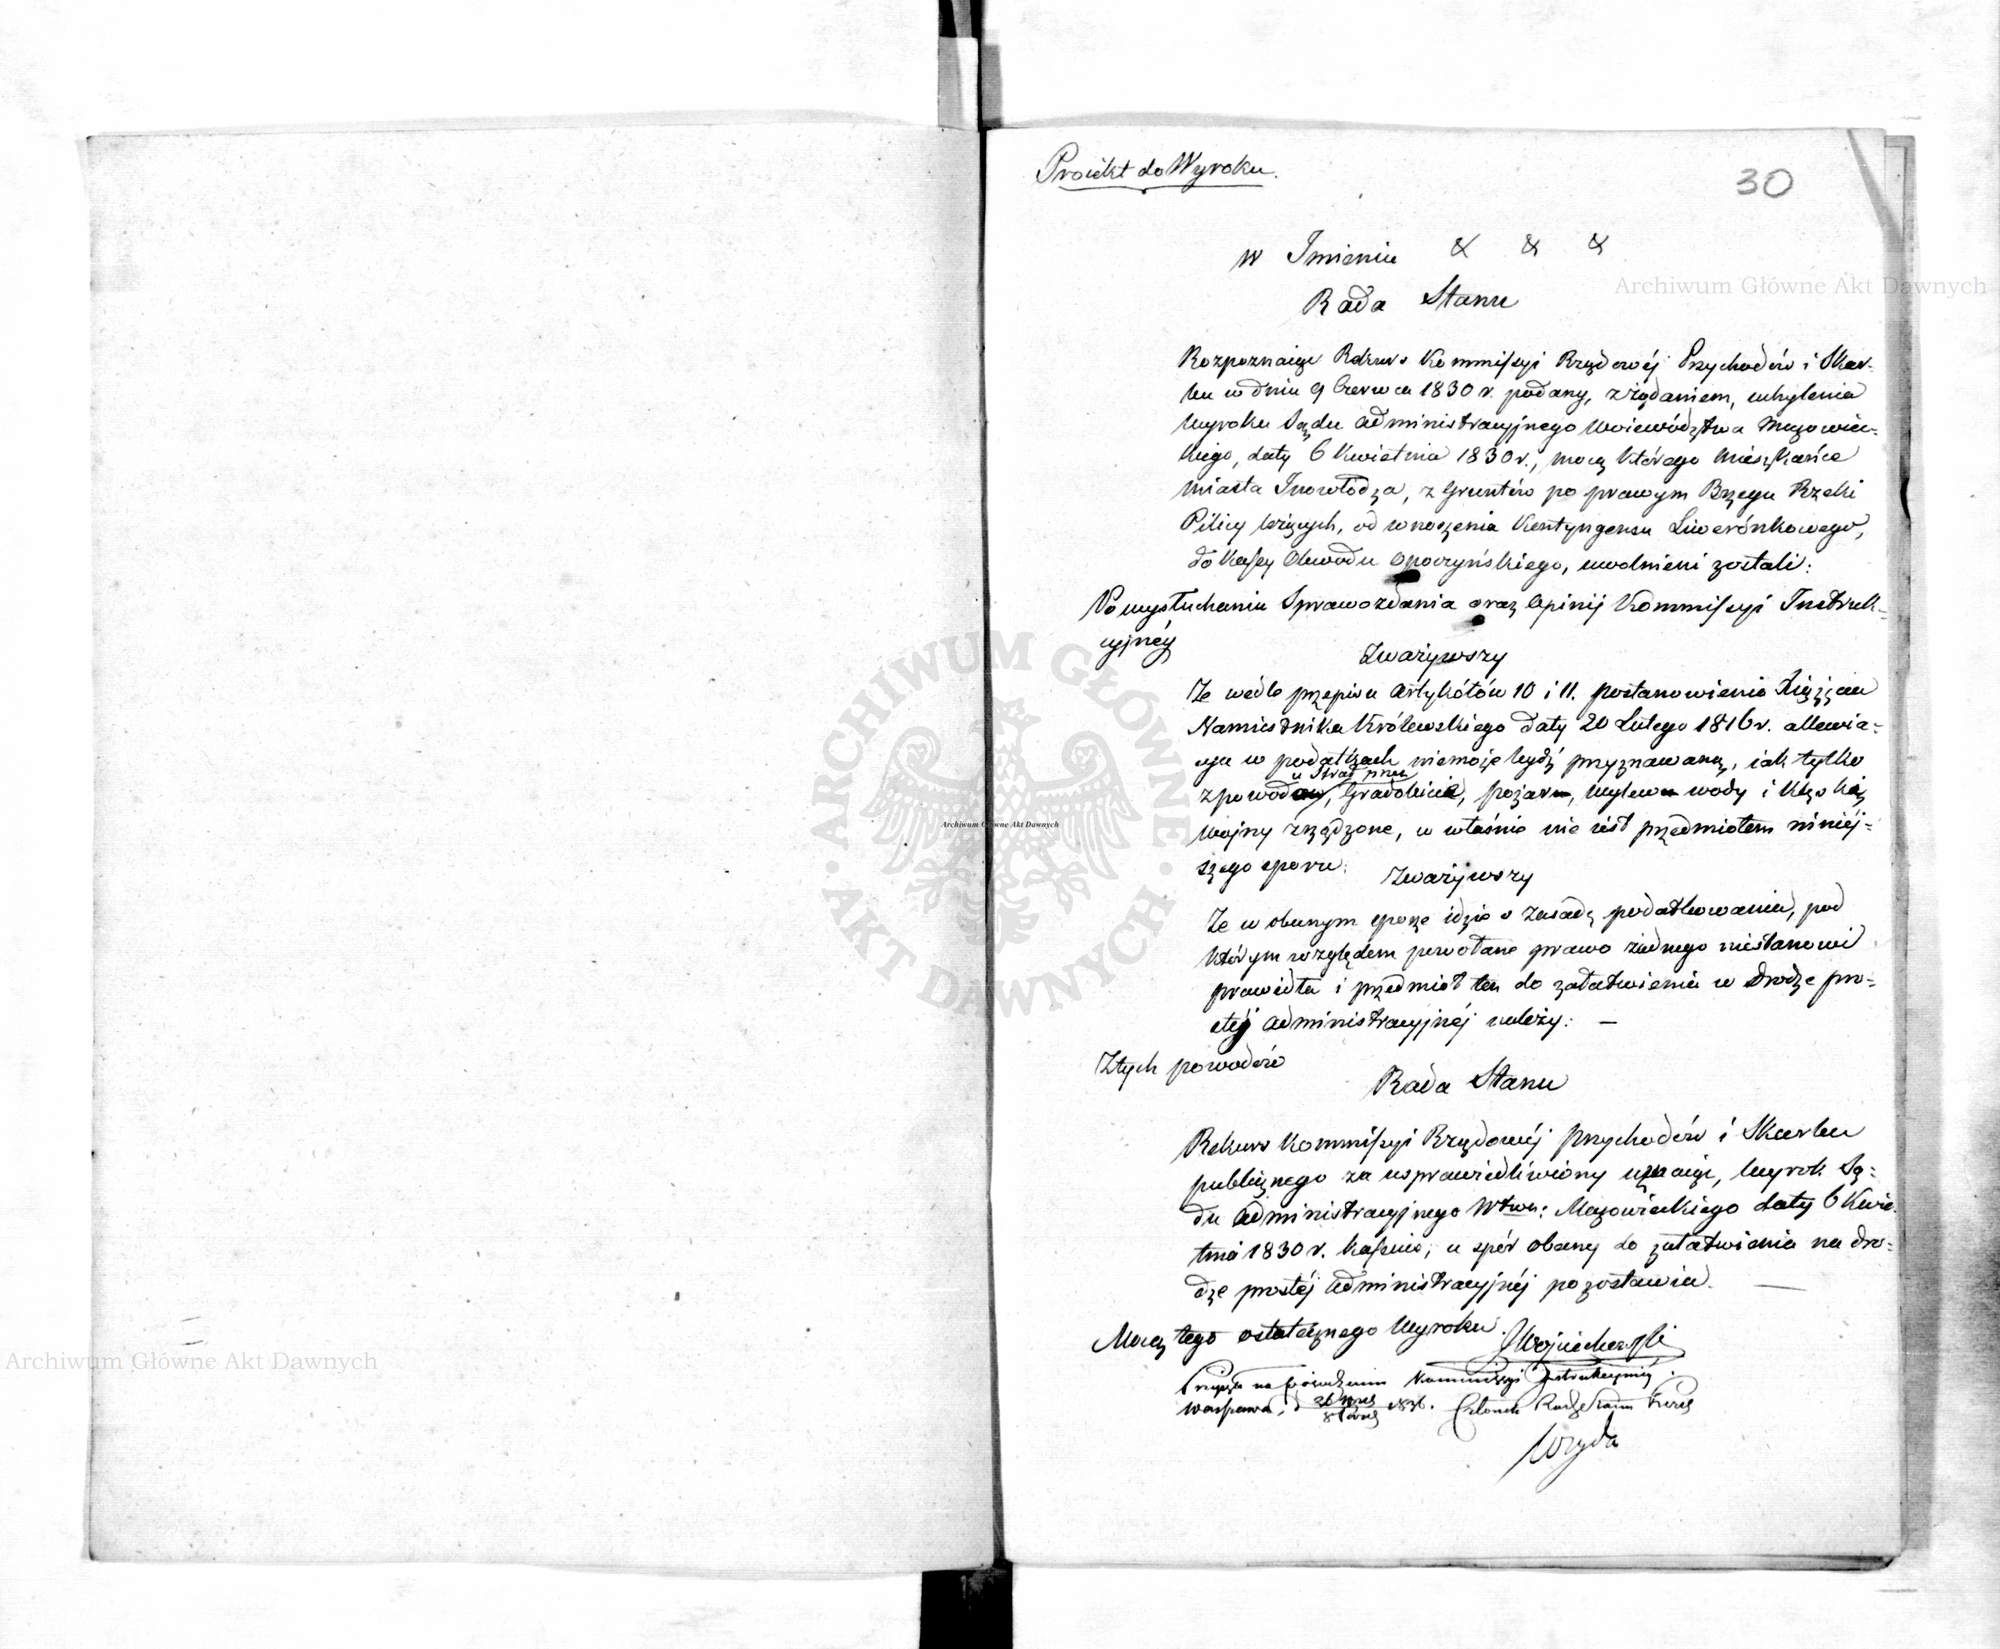 Proiekt do Wyroku.
30
w Imieniu & & &
Rada Stanu
Rozpoznaiąc Rekurs Kommissyi Rządowéj Przychodów i Skar-
bu w dniu 9 Czerwca 1830 r. podany, z żądaniem, uchylenia
Wyroku Sądu Administracyjnego Woiewództwa Mazowiec-
kiego, daty 6 Kwietnia 1830 r., mocą którego Mieszkańce
Miasta Inowłodza, z Gruntów po prawym Brzegu Rzeki
Pilicy leżących, od wnoszenia Kontyngensu Liwerónkowego,
do Kassy Obwodu Opoczyńskiego, uwolnieni zostali:
Po wysłuchaniu Sprawozdania oraz Opinij Kommissyi Instruk-
cyjnéy
Zważywszy
Że wedle przepisu Artykółów 10 i 11. postanowienia Xiążęcia
Namiestnika Królewskiego daty 20 Lutego 1816 r. allewia-
cya w podatkach niemoże bydź przyznawaną, iak tylko
u strat przez
z powodów, Gradobicie, pożar, wylew wody i klęskę
Wojny zrządzone, co właśnie nie iest przedmiotem niniéj-
szego sporu:
Zważywszy
Że w obecnym sporze idzie o zasadę podatkowania, pod
którym względem powołane prawo żadnego niestanowi
prawidła i przedmiot ten do załatwienia w drodze pro-
stéj administracyjnéj należy: —
Z tych powodów
Rada Stanu
Rekurs Kommissyi Rządowéj Przychodów i Skarbu
publicznego za usprawiedliwiony uznaiąc, Wyrok Są-
du Administracyjnego Wtwa: Mazowieckiego daty 6 Kwie-
tnia 1830 r. kassuie, a spór obecny do załatwienia na dro-
dze prostéj administracyjnéj pozostawia. —
Mocą tego ostatecznego Wyroku.
Wojciechowski
na posiedzeniu Kommissyi Instrukcyjnéj
Warszawa, d 1836. Członek Rady Stanu
Wyda
Archiwum Główne Akt Dawnych
Archiwum Główne Akt Dawnych
Archiwum Główne Akt Dawnych
ARCHIWUM GŁÓWNE
AKT DAWNYCH